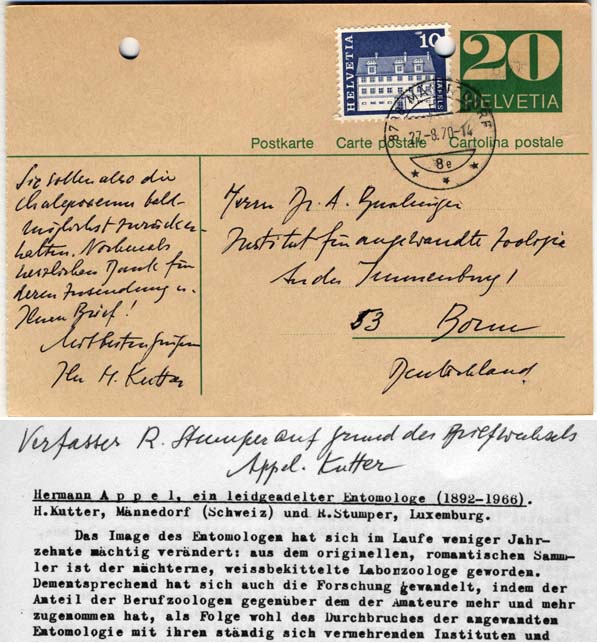 HELVETIA
10
20
HELVETIA
8708 MÄNNEDORF
27-8.70-14
8e
Postkarte Carte postale Cartolina postale
Sie sollen also die
Chalepoxenus bald-
möglichst zurücker-
halten. Nochmals
herzlichen Dank für
deren Zusendung u.
Ihren Brief!
Mit besten Grüßen
Ihr H. Kutter
Herrn Dr. A. Buschinger
Institut für angewandte Zoologie
An der Immenburg 1
53 Bonn
Deutschland
Verfasser R. Stumper auf Grund des Briefwechsels
Appel-Kutter
Hermann A p p e l, ein leidgeadelter Entomologe (1892-1966).
H.Kutter, Männedorf (Schweiz) und R.Stumper, Luxemburg.
Das Image des Entomologen hat sich im Laufe weniger Jahr-
zehnte mächtig verändert: aus dem originellen, romantischen Samm-
ler ist der nüchterne, weissbekittelte Laborzoologe geworden.
Dementsprechend hat sich auch die Forschung gewandelt, indem der
Anteil der Berufzoologen gegenüber dem der Amateure mehr und mehr
zugenommen hat, als Folge wohl des Durchbruches der angewandten
Entomologie mit ihren ständig sich vermehrenden Instituten und